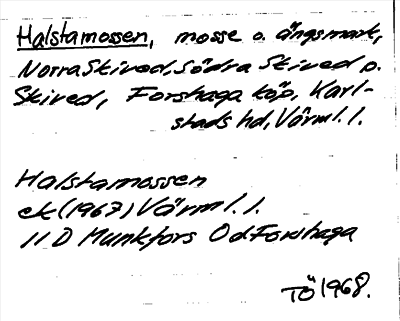 Halstamossen, mosse o. ängsmark,
Norra Skived, Södra Skived p.
Skived, Forshaga köp, Karl-
stads hd, Värml. l.
Halstamossen
ek (1967) Värml. l.
11 D Munkfors Od Forshaga
TÖ 1968.